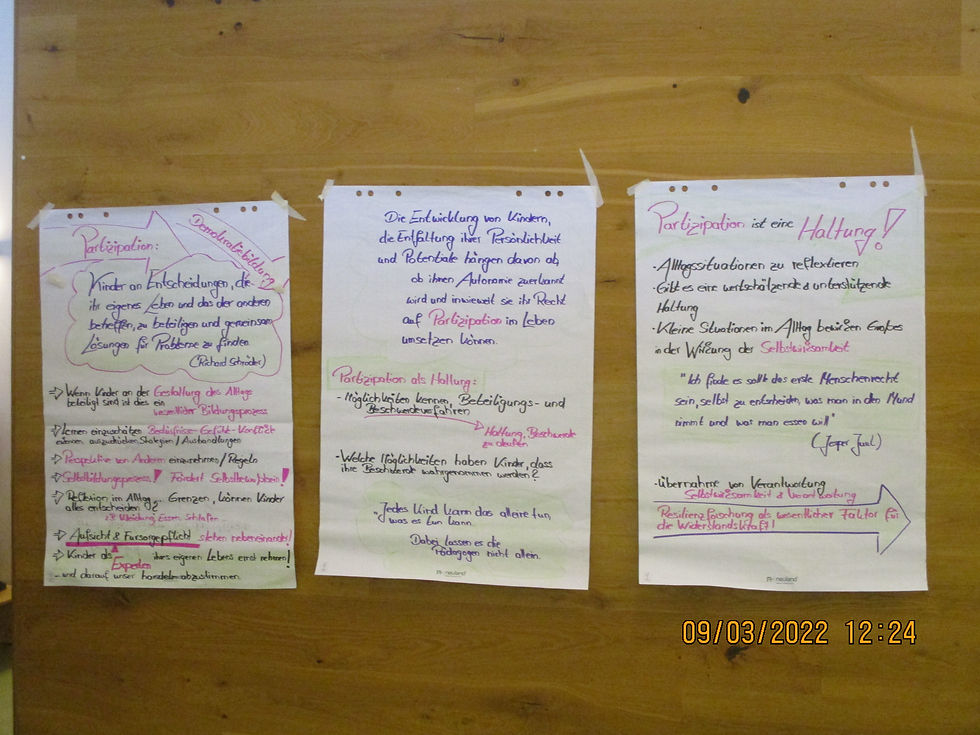 Demokratiebildung
Partizipation:
Kinder an Entscheidungen, die
ihr eigenes Leben und das der anderen
betreffen, zu beteiligen und gemeinsam
Lösungen für Probleme zu finden
(Richard Schröder)
Wenn Kinder an der Gestaltung des Alltags
beteiligt sind ist dies ein
wesentlicher Bildungsprozess
Lernen einzuschätzen Bedürfnisse-Gefühl-Konflikt
auszudrücken Strategien / Aushandlungen
Perspektive von Anderen einzunehmen / Regeln
Selbstbildungsprozess! Fördert Selbstbewußtsein!
Reflektion im Alltag... Grenzen, können Kinder
alles entscheiden?
z.B. Kleidung, Essen, Schlafen...
Aufsicht & Fürsorgepflicht stehen nebeneinander!
Kinder als Experten ihres eigenen Lebens ernst nehmen!
- und darauf unser handeln abzustimmen
Die Entwicklung von Kindern,
die Entfaltung ihrer Persönlichkeit
und Potentiale hängen davon ab,
ob ihnen Autonomie zuerkannt
wird und inwieweit sie ihr Recht
auf Partizipation im Leben
umsetzen können.
Partizipation als Haltung:
- Möglichkeiten kennen, Beteiligungs- und
Beschwerdeverfahren
Haltung, Beschwerde
zu dürfen
- Welche Möglichkeiten haben Kinder, dass
ihre Beschwerde wahrgenommen werden?
"Jedes Kind kann das alleine tun,
was es tun kann.
Dabei lassen es die
Pädagogen nicht allein.
neuland
Partizipation ist eine Haltung!
· Alltagssituationen zu reflektieren
· Gibt es eine wertschätzende & unterstützende
Haltung
· Kleine Situationen im Alltag bewirken Großes
in der Wirkung der Selbstwirksamkeit
"Ich finde es sollte das erste Menschenrecht
sein, selbst zu entscheiden, was man in den Mund
nimmt und was man essen will"
(Jesper Juul)
· Übernahme von Verantwortung
Selbstwirksamkeit & Verantwortung
Resilienzforschung als wesentlicher Faktor für
die Widerstandskraft!
neuland
09/03/2022 12:24